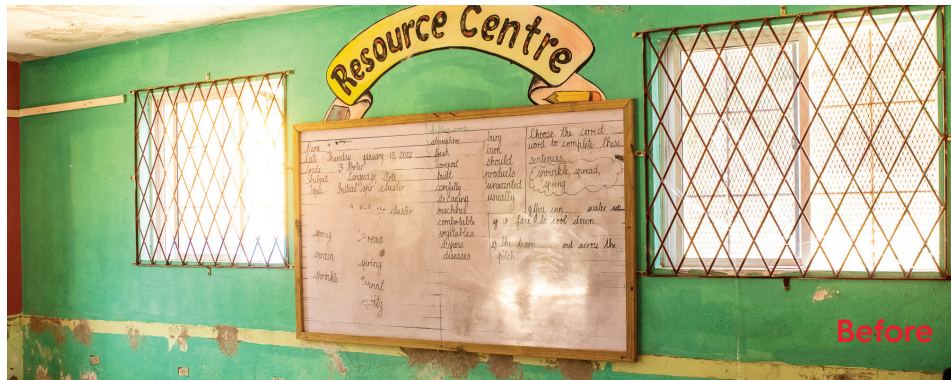 Resource Centre
Name
Date Thursday January 13, 2022
Grade 3 Porter
Subject Language Arts
Topic Initial spr cluster
cluster
spring
sprain
sprinkle
spread
spring
sprint
atmosphere
fresh
compost
built
carefully
decaying
machines
comfortable
vegetables
dispose
diseases
bury
iron
should
products
unwanted
usually
Choose the correct
word to complete these
sentences.
sprinkle, spread,
spring
1) You can water
it fire to cool down.
2) The team out across the
pitch.
Before